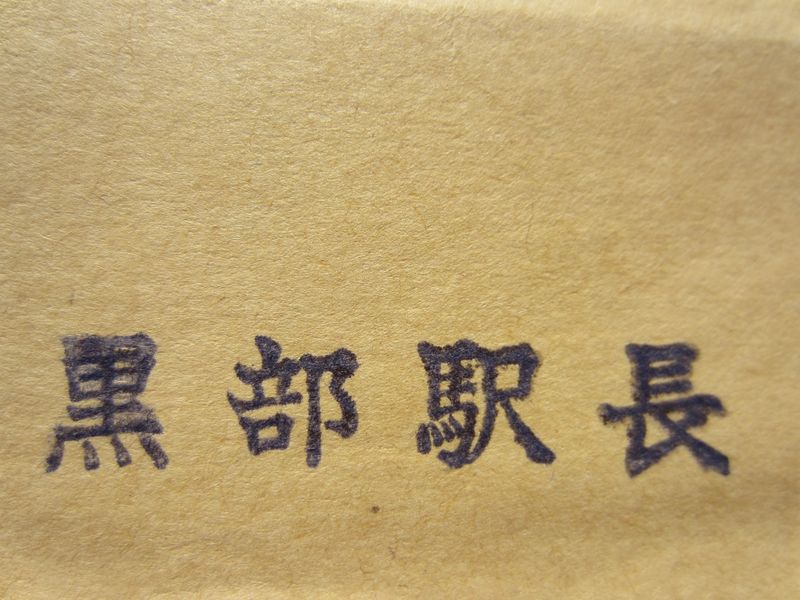 黒部駅長